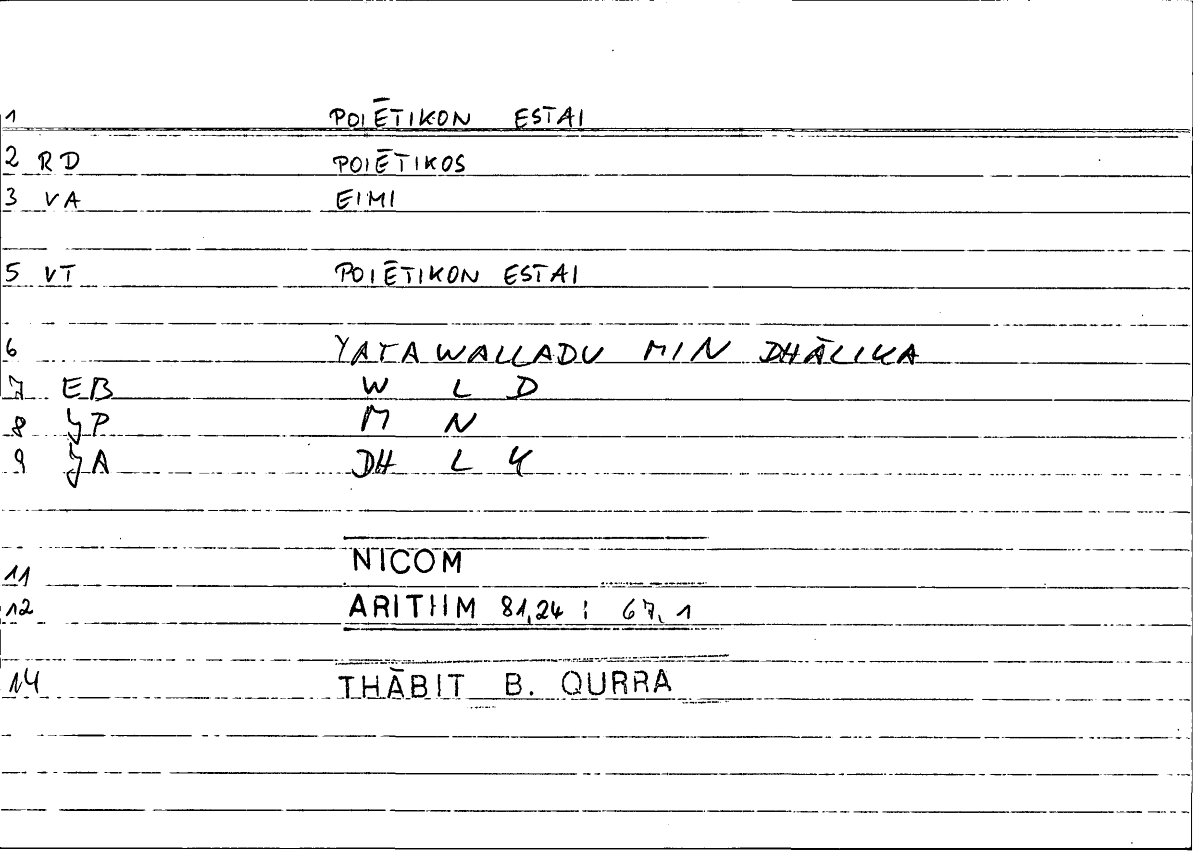 1 POIĒTIKON ESTAI
2 RD POIĒTIKOS
3 VA EIMI
5 VT POIĒTIKON ESTAI
6 YATAWALLADU MIN DHĀLIKA
7 EB W L D
8 JP M N
9 JA DH L K
11 NICOM
12 ARITHM 81,24 ; 67,1
14 THĀBIT B. QURRA